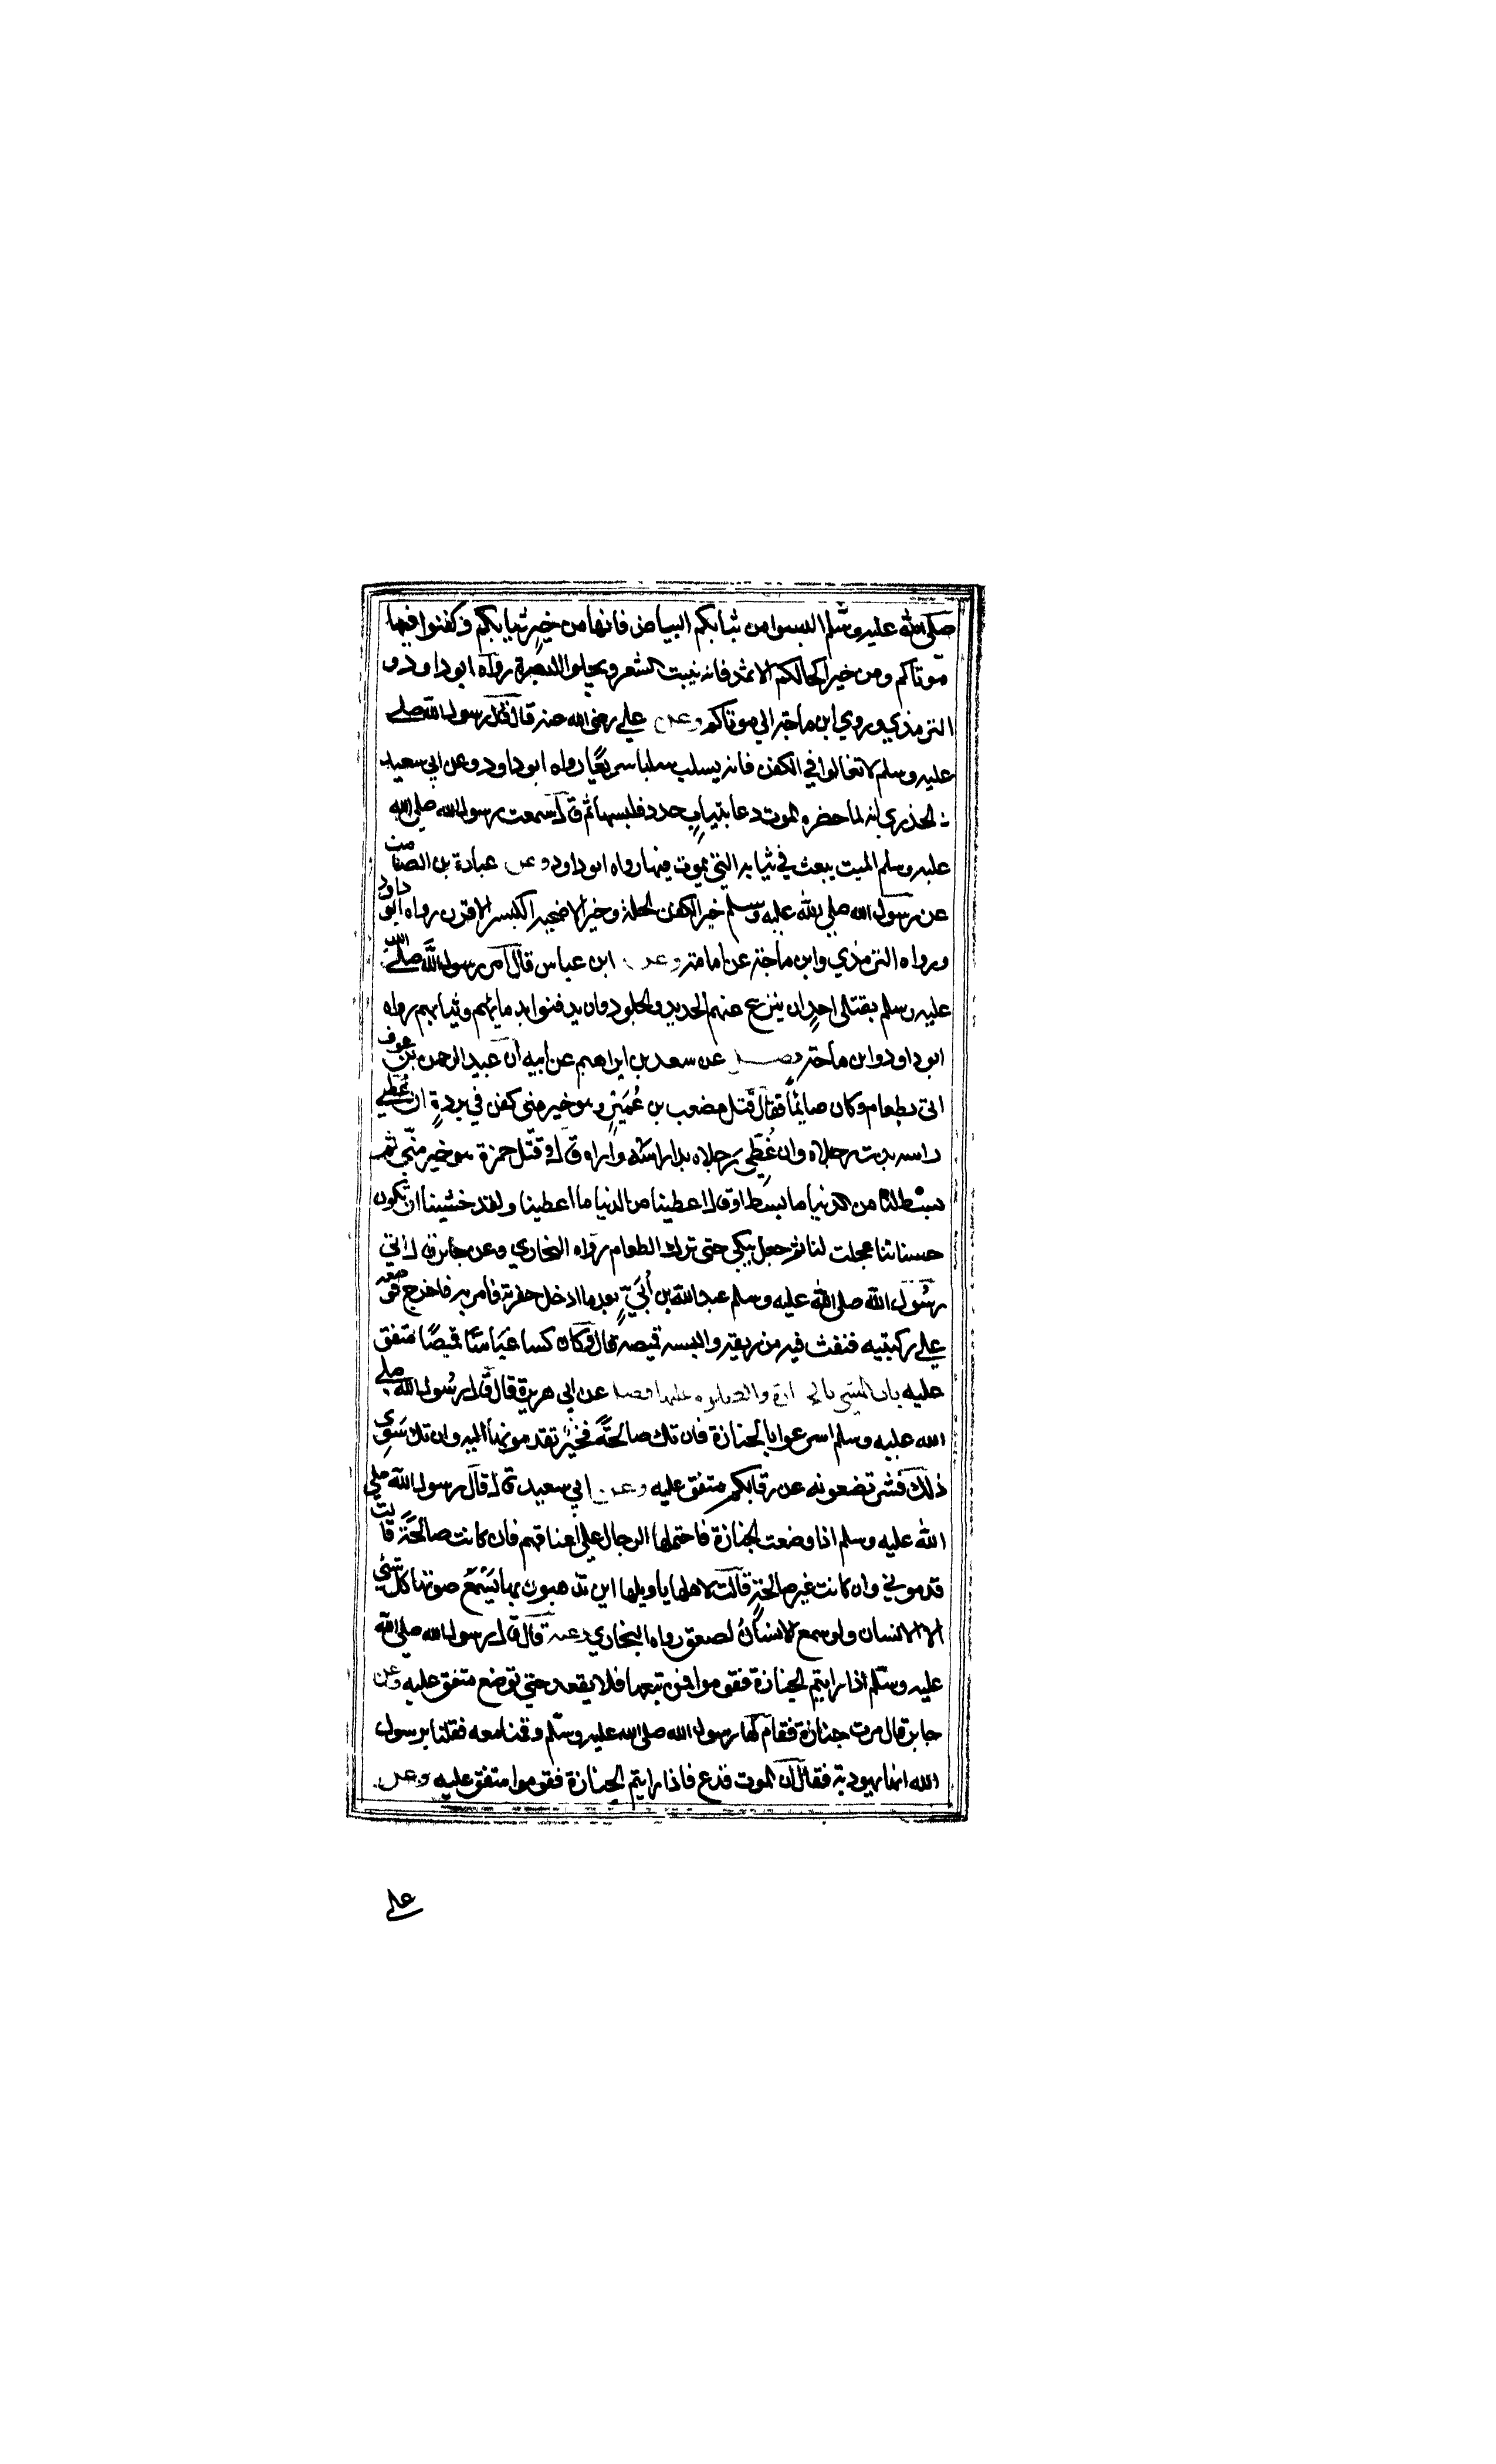 صلى الله عليه وسلم البسوا من ثيابكم البياض فانها من خير ثيابكم وكفنوا فيها
موتاكم ومن خير اكحالكم الاثمد فانه ينبت الشعر ويجلو البصر رواه ابو داود و
الترمذي وروي ابن ماجة الي موتاكم وعن علي رضي الله عنه قال قال رسول الله صلي الله
عليه وسلم لا تغالوا في الكفن فانه يسلب سلبا سريعًا رواه ابو داود وعن ابي سعيد
الخذري انه لما حضره الموت دعا بثياب جدد فلبسها ثم قال سمعت رسول الله صلى الله
عليه وسلم الميت يبعث في ثيابه التي يموت فيها رواه ابو داود وعن عبادة بن الصامت
عن رسول الله صلى الله عليه وسلم خير الكفن الحلة وخير الاضحية الكبش الاقرن رواه ابو داود
ورواه الترمذي وابن ماجة عن امامة وعن ابن عباس قال امر رسول الله صلي الله
عليه وسلم بقتلى احد ان ينزع عنهم الحديد والجلود وان يدفنوا بدمايهم وثيابهم رواه
ابو داود وابن ماجة فصل عن سعد بن ابراهيم عن ابيه ان عبد الرحمن بن عوف
اتى بطعام وكان صايمًا فقال قتل مصعب بن عُمَيْرٍ وهو خير مني كفن في بردةٍ ان غُطّي
راسه بدت رجلاه وان غُطِّي رجلاه بدا راسه واراه قال وقتل حمزة هو خير منّي ثم
بسط لنا من الدنيا ما بسط او قال اعطينا من الدنيا ما اعطينا ولقد خشينا ان تكون
حسناتنا عجلت لنا ثم جعل يبكي حتى ترك الطعام رواه البخاري وعن جابر قال اتي
رسُول الله صلى الله عليه وسلم عبد الله بن اُبَيٍّ بعد ما ادخل حفرته فامر به فاخرج فوضعه
علي ركبتيه فنفث فيه من ريقه والبسه قميصه قال وكان كسا عَبّاسًا قميصًا متفق
عليه باب المشي بالجنازة والصلوة عليها فصل عن ابي هريرة قال قال رسُول الله صلي
الله عليه وسلم اسرعوا بالجنازة فان تك صالحةً فخيرٌ تقدمونها اليه وان تك سوى
ذلك فشر تضعونه عن رقابكم متفق عليه وعن ابي سعيد قال قال رسول الله صلي
الله عليه وسلم اذا وضعت الجنازة فاحتملها الرجال علي اعناقهم فان كانت صالحةً قالت
قدموني وان كانت غير صالحةٍ قالت لاهلها يا ويلها اين تذهبون بها يَسْمَعُ صوتها كل شيئ
الا الانسان ولو سمع الانسانُ لصعق رواه البخاري وعنه قال قال رسول الله صلى الله
عليه وسلّم اذا رايتم الجنازة فقوموا فمن تبعها فلا يقعد حتي توضع متفق عليه وعن
جابر قال مرت جنازة فقام لها رسول الله صلى الله عليه وسلم وقمنا معه فقلنا يرسول
الله انها يهودية فقال ان الموت فزع فاذا رايتم الجنازة فقوموا متفق عليه وعن
علي